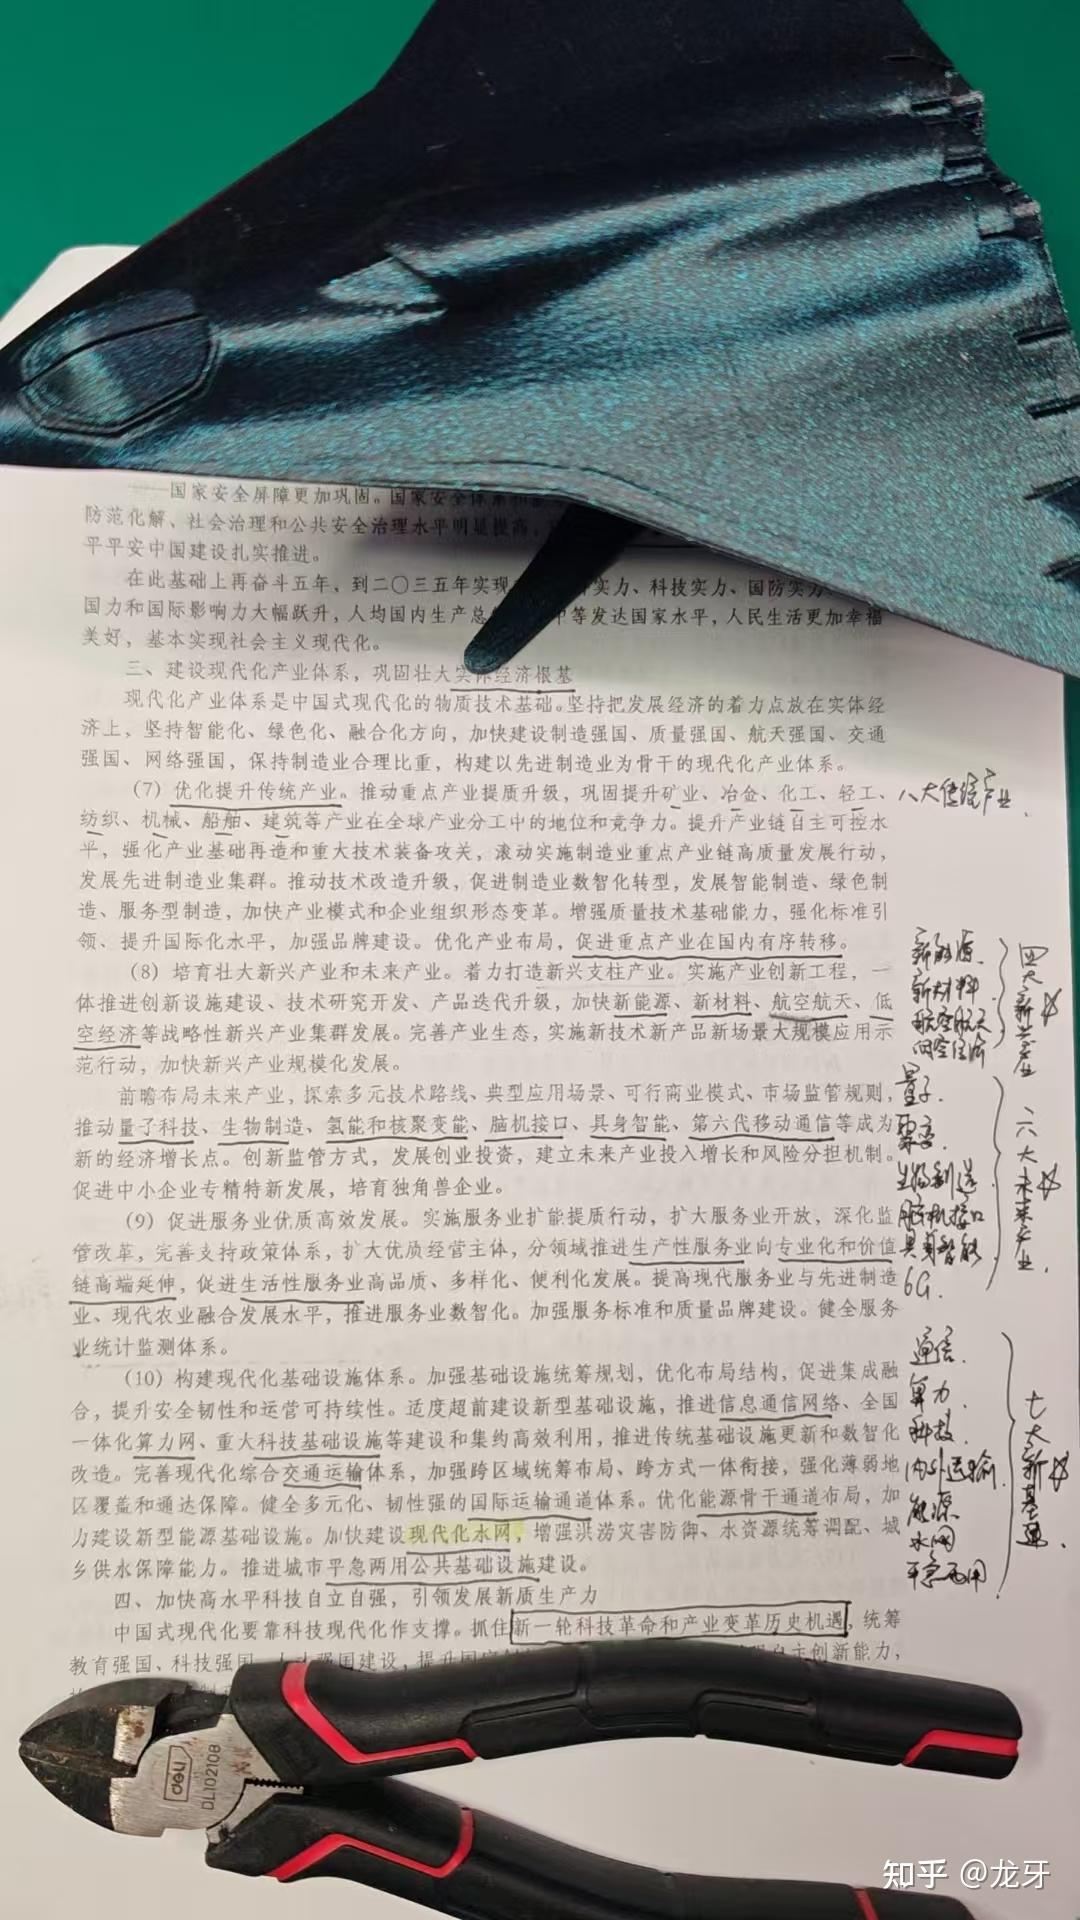 ——国家安全屏障更加巩固。国家安全体系和
防范化解、社会治理和公共安全治理水平明显提高，
平平安中国建设扎实推进。
在此基础上再奋斗五年，到二〇三五年实现 实力、科技实力、国防实力、
国力和国际影响力大幅跃升，人均国内生产总 中等发达国家水平，人民生活更加幸福
美好，基本实现社会主义现代化。
三、建设现代化产业体系，巩固壮大实体经济根基
现代化产业体系是中国式现代化的物质技术基础。坚持把发展经济的着力点放在实体经
济上，坚持智能化、绿色化、融合化方向，加快建设制造强国、质量强国、航天强国、交通
强国、网络强国，保持制造业合理比重，构建以先进制造业为骨干的现代化产业体系。
（7）优化提升传统产业。推动重点产业提质升级，巩固提升矿业、冶金、化工、轻工、
八大传统产业.
纺织、机械、船舶、建筑等产业在全球产业分工中的地位和竞争力。提升产业链自主可控水
平，强化产业基础再造和重大技术装备攻关，滚动实施制造业重点产业链高质量发展行动，
发展先进制造业集群。推动技术改造升级，促进制造业数智化转型，发展智能制造、绿色制
造、服务型制造，加快产业模式和企业组织形态变革。增强质量技术基础能力，强化标准引
领、提升国际化水平，加强品牌建设。优化产业布局，促进重点产业在国内有序转移。
（8）培育壮大新兴产业和未来产业。着力打造新兴支柱产业。实施产业创新工程，一
体推进创新设施建设、技术研究开发、产品迭代升级，加快新能源、新材料、航空航天、低
空经济等战略性新兴产业集群发展。完善产业生态，实施新技术新产品新场景大规模应用示
范行动，加快新兴产业规模化发展。
新能源.
新材料.
航空航天
低空经济
四大新兴产业
前瞻布局未来产业，探索多元技术路线、典型应用场景、可行商业模式、市场监管规则，
推动量子科技、生物制造、氢能和核聚变能、脑机接口、具身智能、第六代移动通信等成为
新的经济增长点。创新监管方式，发展创业投资，建立未来产业投入增长和风险分担机制。
促进中小企业专精特新发展，培育独角兽企业。
量子.
聚变.
生物制造
脑机接口
具身智能
6G.
六大未来产业.
（9）促进服务业优质高效发展。实施服务业扩能提质行动，扩大服务业开放，深化监
管改革，完善支持政策体系，扩大优质经营主体，分领域推进生产性服务业向专业化和价值
链高端延伸，促进生活性服务业高品质、多样化、便利化发展。提高现代服务业与先进制造
业、现代农业融合发展水平，推进服务业数智化。加强服务标准和质量品牌建设。健全服务
业统计监测体系。
（10）构建现代化基础设施体系。加强基础设施统筹规划，优化布局结构，促进集成融
合，提升安全韧性和运营可持续性。适度超前建设新型基础设施，推进信息通信网络、全国
一体化算力网、重大科技基础设施等建设和集约高效利用，推进传统基础设施更新和数智化
改造。完善现代化综合交通运输体系，加强跨区域统筹布局、跨方式一体衔接，强化薄弱地
区覆盖和通达保障。健全多元化、韧性强的国际运输通道体系。优化能源骨干通道布局，加
力建设新型能源基础设施。加快建设现代化水网，增强洪涝灾害防御、水资源统筹调配、城
乡供水保障能力。推进城市平急两用公共基础设施建设。
通信.
算力
科技.
内外运输
能源
水网
平急两用
七大新基建.
四、加快高水平科技自立自强，引领发展新质生产力
中国式现代化要靠科技现代化作支撑。抓住新一轮科技革命和产业变革历史机遇，统筹
教育强国、科技强国、人才强国建设，提升国家创 自主创新能力，
deli
DL102108
知乎 @龙牙